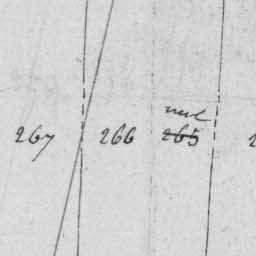 nul
267 266 265 2